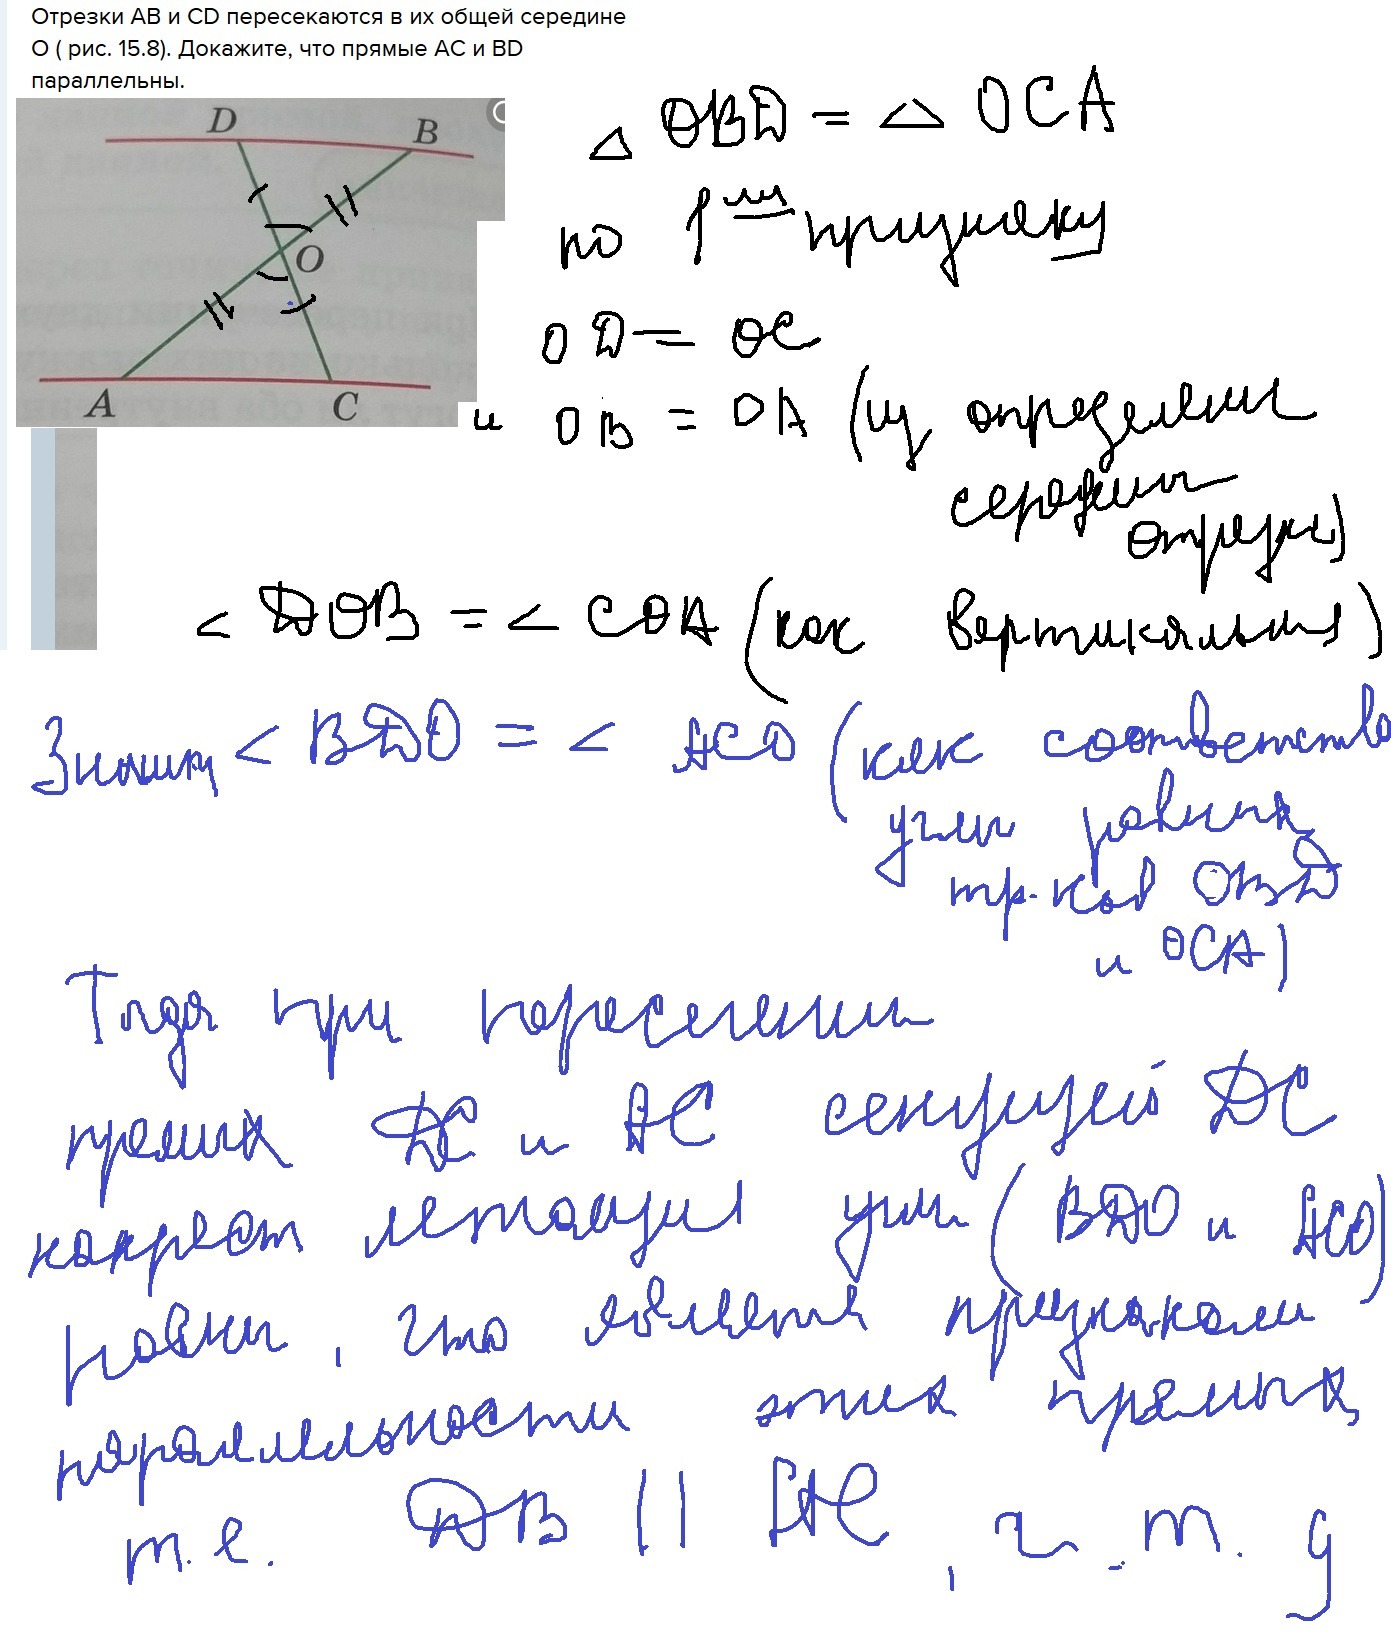 Отрезки AB и CD пересекаются в их общей середине
O ( рис. 15.8). Докажите, что прямые AC и BD
параллельны.
D
B
O
A
C
△ OBD = △ OCA
по 1ому признаку
OD = OC
и OB = OA (из определения
середины
отрезка)
< DOB = < COA (как вертикальные)
Значит < BDO = < ACO (как соответство
углы равных
тр-ков OBD
и OCA)
Тогда при пересечении
прямых DC и AC секущей DC
накрест лежащие углы (BDO и ACO)
равны, что является признаком
параллельности этих прямых,
т.е. DB || AC, ч.т.д